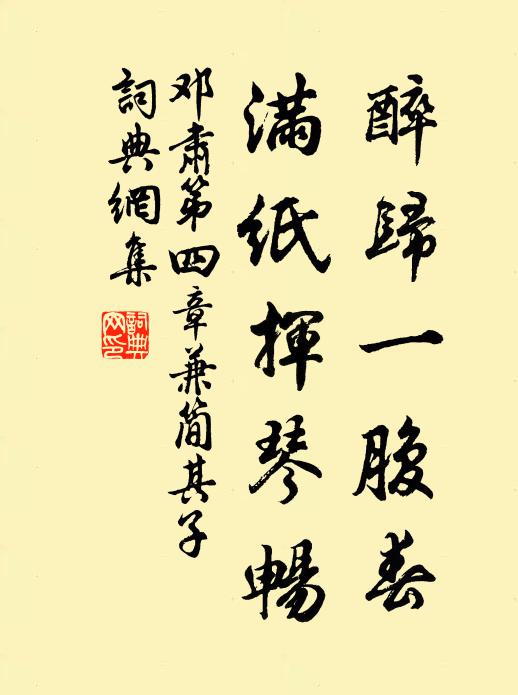 醉歸一腹春
滿紙揮琴暢
邓肅第四章兼简其子
詞典網集
詞典网印